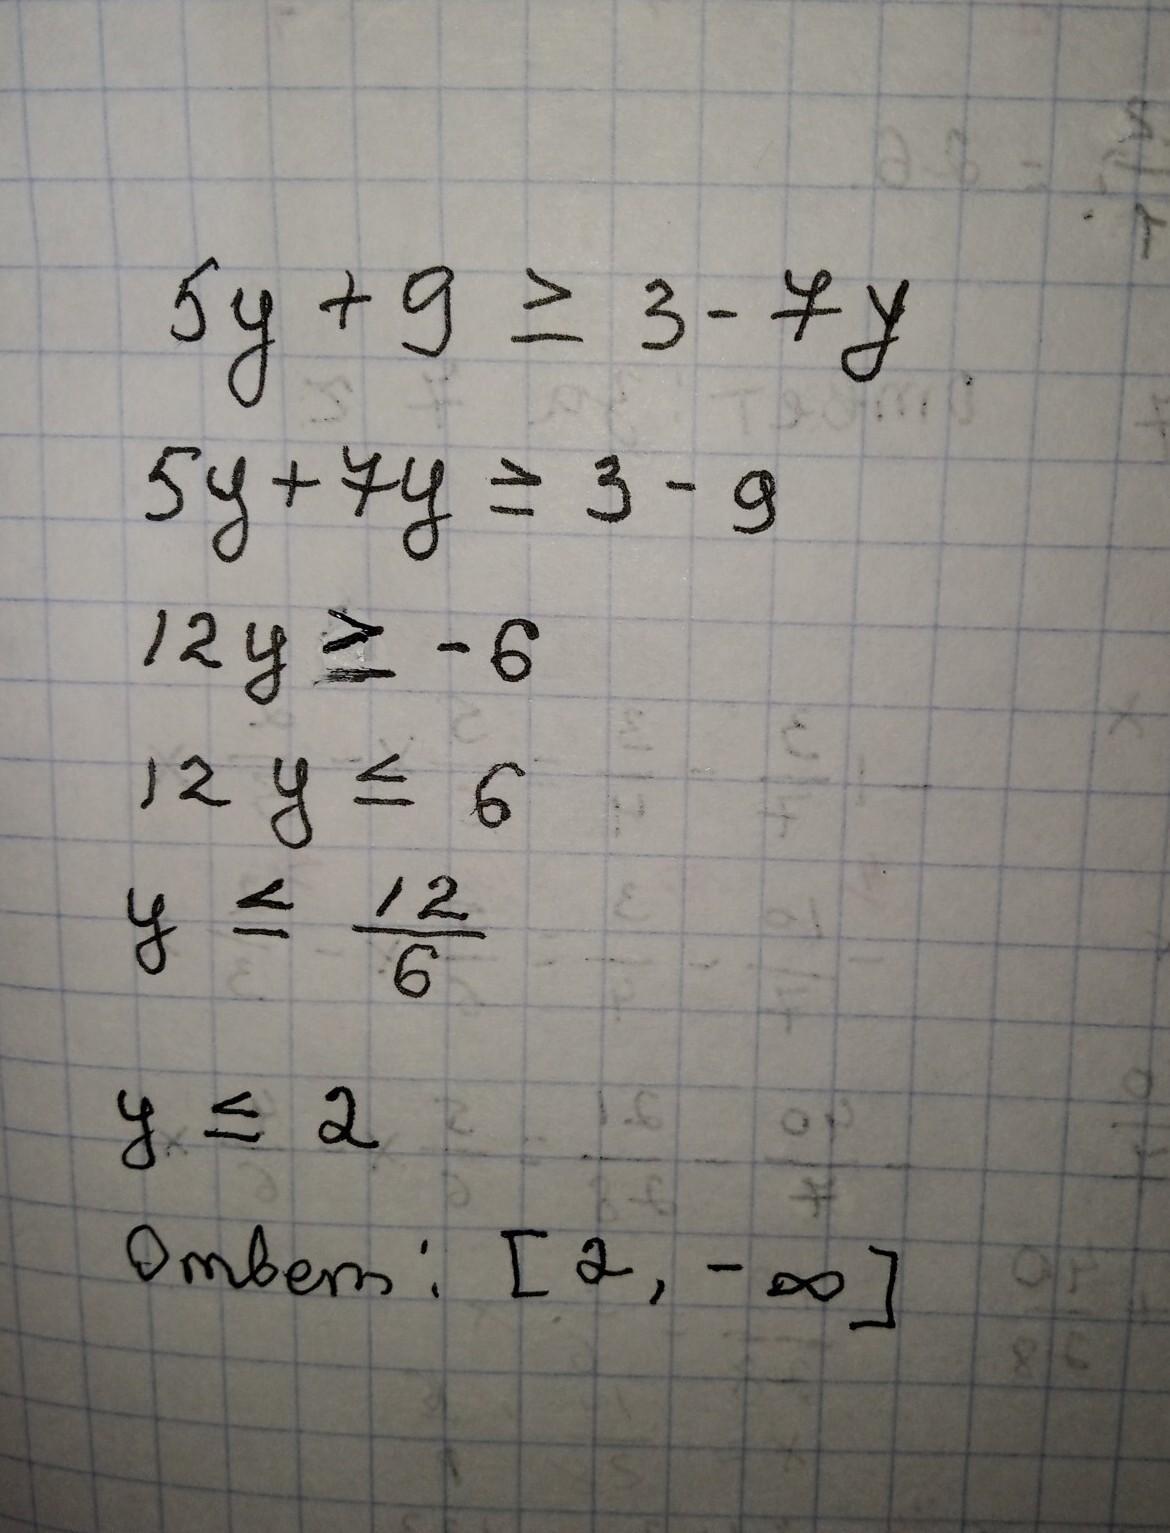 5y + 9 ≥ 3 - 7y
5y + 7y ≥ 3 - 9
12y ≥ -6
12y ≤ 6
y ≤ 12/6
y ≤ 2
Ответ: [2, -∞]